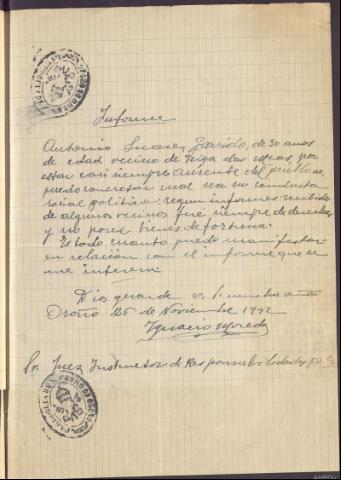 Informe
Antonio Suarez Garrido, de 30 anos
de edad vecino de Veiga das Meas, por
estar casi siempre ausente del pueblo no
puedo concretar cual sea su conducta
social politica: segun informes recibido
de algunos vecinos fue siempre de derechas,
y no posee bienes de fortuna.
Es todo cuanto puedo manifestar
en relacion con el informe que se
me interesa.
Dios guarde a V. muchos años
Osoño 25 de Noviembre 1942
Ignacio
Sr. Juez Instructor de Responsabilidades